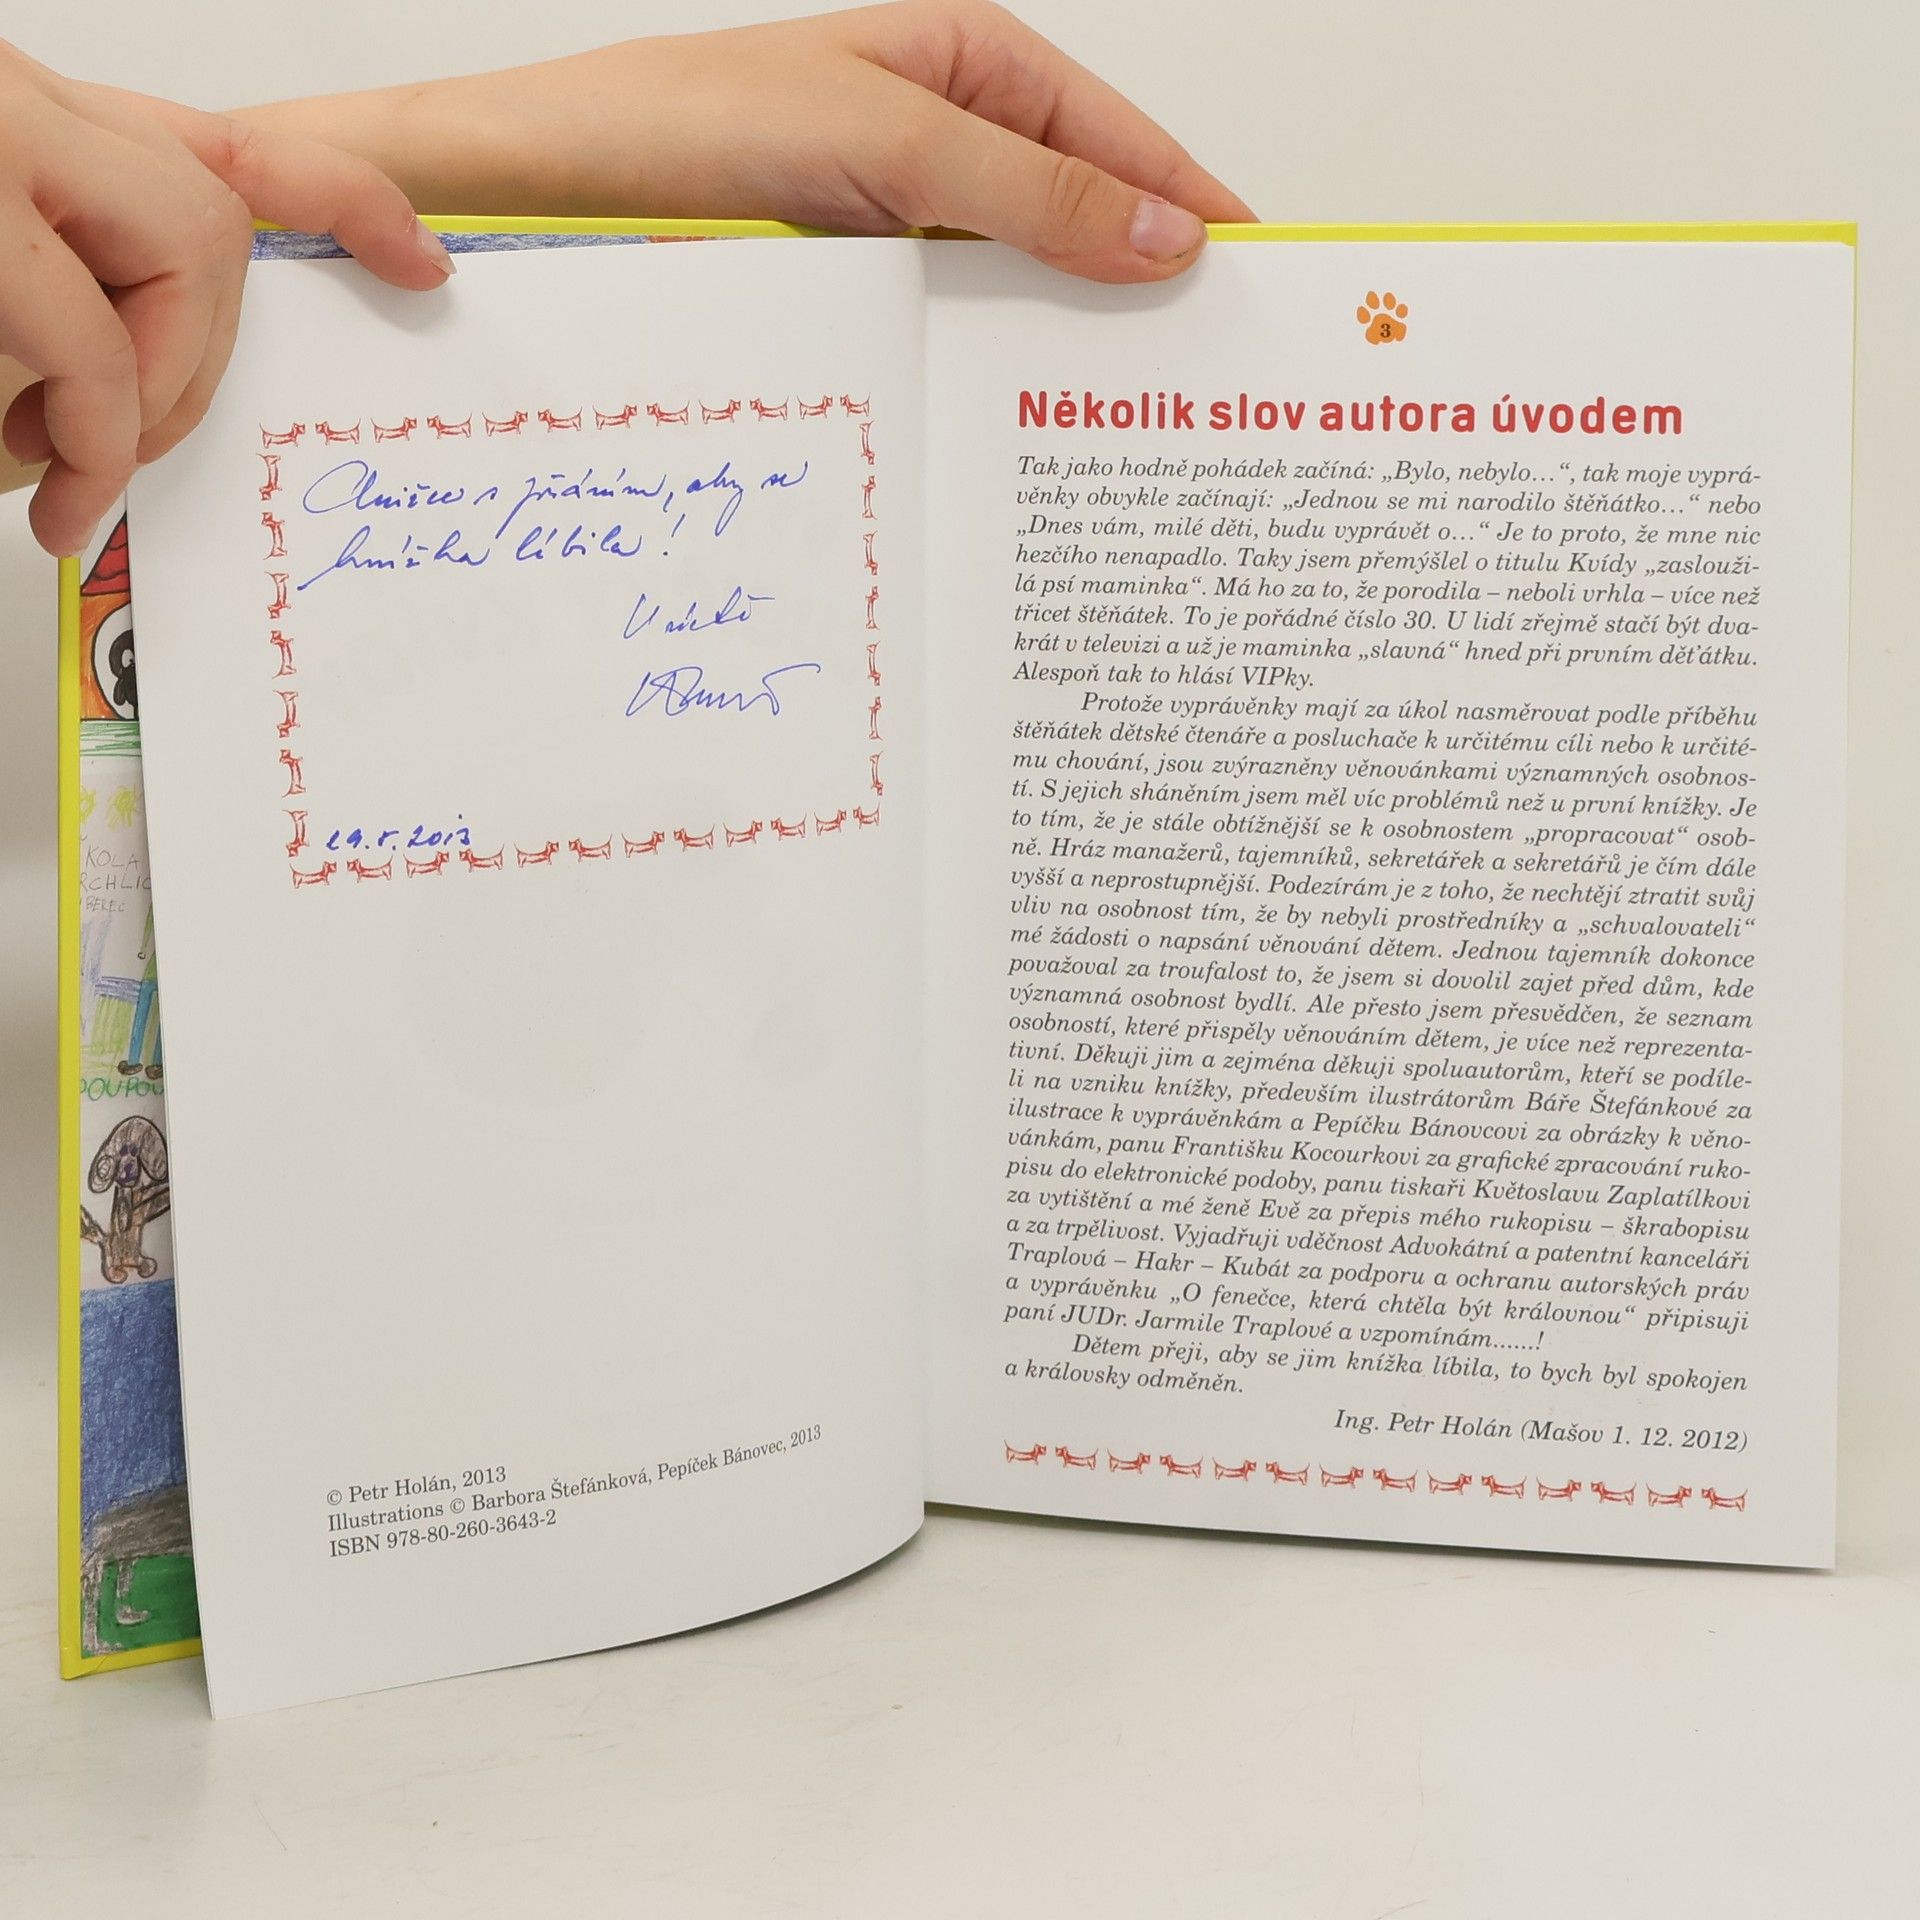 s přáním, aby se
knížka líbila!
V úctě
29.5.2013
© Petr Holán, 2013
Illustrations © Barbora Štefánková, Pepíček Bánovec, 2013
ISBN 978-80-260-3643-2
KOLA
RCHLIC
BEREC
3
Několik slov autora úvodem
Tak jako hodně pohádek začíná: „Bylo, nebylo…“, tak moje vyprá-
věnky obvykle začínají: „Jednou se mi narodilo štěňátko…“ nebo
„Dnes vám, milé děti, budu vyprávět o…“ Je to proto, že mne nic
hezčího nenapadlo. Taky jsem přemýšlel o titulu Kvídy „zaslouži-
lá psí maminka“. Má ho za to, že porodila – neboli vrhla – více než
třicet štěňátek. To je pořádné číslo 30. U lidí zřejmě stačí být dva-
krát v televizi a už je maminka „slavná“ hned při prvním děťátku.
Alespoň tak to hlásí VIPky.
Protože vyprávěnky mají za úkol nasměrovat podle příběhu
štěňátek dětské čtenáře a posluchače k určitému cíli nebo k určité-
mu chování, jsou zvýrazněny věnovánkami významných osobnos-
tí. S jejich sháněním jsem měl víc problémů než u první knížky. Je
to tím, že je stále obtížnější se k osobnostem „propracovat“ osob-
ně. Hráz manažerů, tajemníků, sekretářek a sekretářů je čím dále
vyšší a neprostupnější. Podezírám je z toho, že nechtějí ztratit svůj
vliv na osobnost tím, že by nebyli prostředníky a „schvalovateli“
mé žádosti o napsání věnování dětem. Jednou tajemník dokonce
považoval za troufalost to, že jsem si dovolil zajet před dům, kde
významná osobnost bydlí. Ale přesto jsem přesvědčen, že seznam
osobností, které přispěly věnováním dětem, je více než reprezenta-
tivní. Děkuji jim a zejména děkuji spoluautorům, kteří se podíle-
li na vzniku knížky, především ilustrátorům Báře Štefánkové za
ilustrace k vyprávěnkám a Pepíčku Bánovcovi za obrázky k věno-
vánkám, panu Františku Kocourkovi za grafické zpracování ruko-
pisu do elektronické podoby, panu tiskaři Květoslavu Zaplatílkovi
za vytištění a mé ženě Evě za přepis mého rukopisu – škrabopisu
a za trpělivost. Vyjadřuji vděčnost Advokátní a patentní kanceláři
Traplová – Hakr – Kubát za podporu a ochranu autorských práv
a vyprávěnku „O fenečce, která chtěla být královnou“ připisuji
paní JUDr. Jarmile Traplové a vzpomínám......!
Dětem přeji, aby se jim knížka líbila, to bych byl spokojen
a královsky odměněn.
Ing. Petr Holán (Mašov 1. 12. 2012)